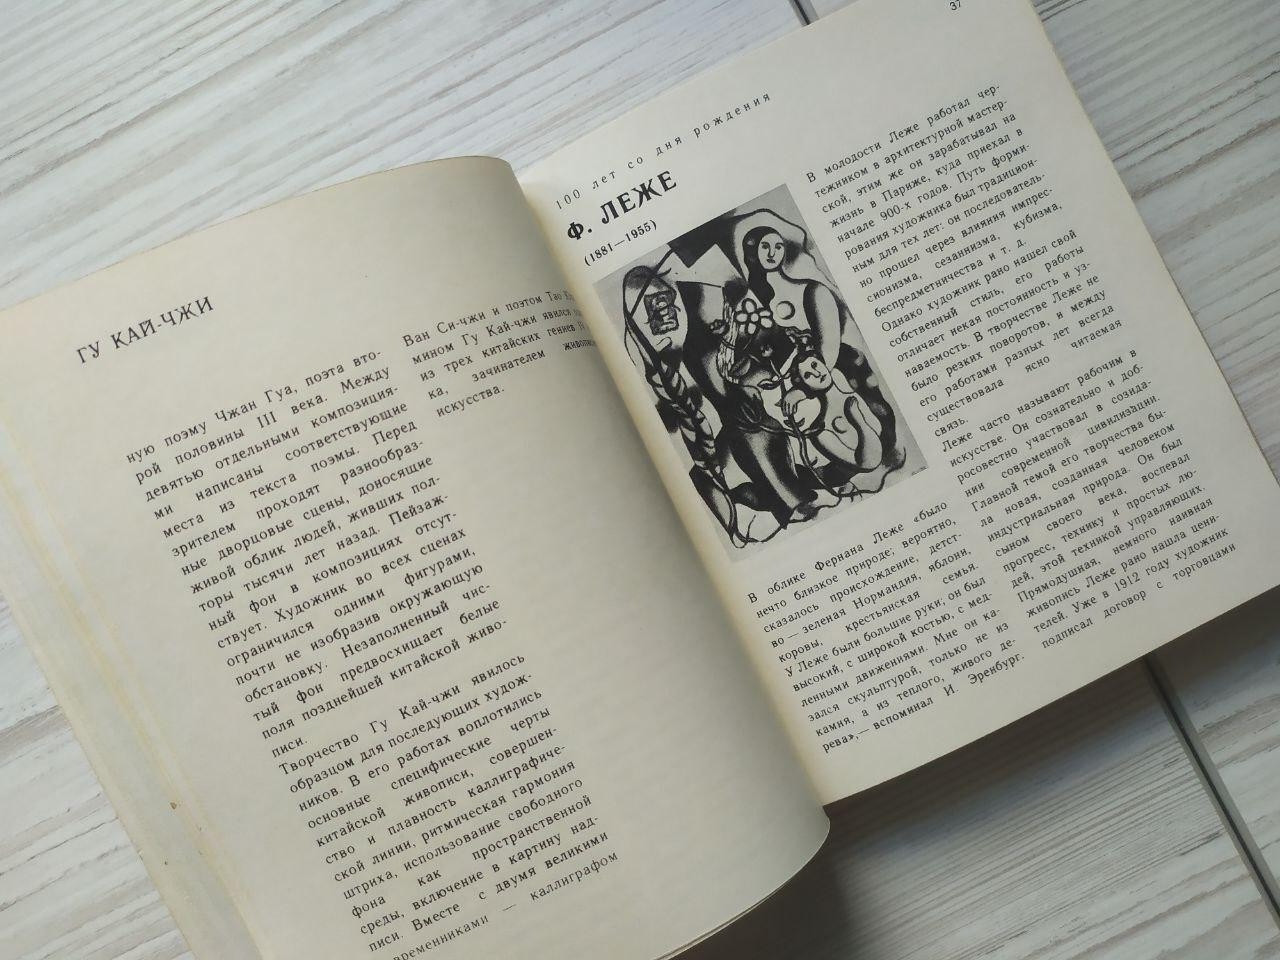 ГУ КАЙ-ЧЖИ
ную поэму Чжан Гуа, поэта вто-
рой половины III века. Между
девятью отдельными композиция-
ми написаны соответствующие
места из текста поэмы. Перед
зрителем проходят разнообраз-
ные дворцовые сцены, доносящие
живой облик людей, живших пол-
торы тысячи лет назад. Пейзаж-
ный фон в композициях отсут-
ствует. Художник во всех сценах
ограничился одними фигурами,
почти не изобразив окружающую
обстановку. Незаполненный чис-
тый фон предвосхищает белые
поля позднейшей китайской живо-
писи.
Творчество Гу Кай-чжи явилось
образцом для последующих худож-
ников. В его работах воплотились
основные специфические черты
китайской живописи, совершен-
ство и плавность каллиграфиче-
ской линии, ритмическая гармония
штриха, использование свободного
фона как пространственной
среды, включение в картину над-
писи. Вместе с двумя великими
временниками — каллиграфом
Ван Си-чжи и поэтом Тао
мином Гу Кай-чжи явился
из трех китайских гениев
ка, зачинателем
искусства.
37
100 лет со дня рождения
Ф. ЛЕЖЕ
(1881—1955)
В облике Фернана Леже «было
нечто близкое природе; вероятно,
сказалось происхождение, детст-
во — зеленая Нормандия, яблони,
коровы, крестьянская семья.
У Леже были большие руки; он был
высокий, с широкой костью, с мед-
ленными движениями. Мне он ка-
зался скульптурой, только не из
камня, а из теплого, живого де-
рева»,— вспоминал И. Эренбург.
В молодости Леже работал чер-
тежником в архитектурной мастер-
ской, этим же он зарабатывал на
жизнь в Париже, куда приехал в
начале 900-х годов. Путь форми-
рования художника был традицион-
ным для тех лет: он последователь-
но прошел через влияния импрес-
сионизма, сезаннизма, кубизма,
беспредметничества и т. д.
Однако художник рано нашел свой
собственный стиль, его работы
отличает некая постоянность и уз-
наваемость. В творчестве Леже не
было резких поворотов, и между
его работами разных лет всегда
существовала ясно читаемая
связь.
Леже часто называют рабочим в
искусстве. Он сознательно и доб-
росовестно участвовал в созида-
нии современной цивилизации.
Главной темой его творчества бы-
ла новая, созданная человеком
индустриальная природа. Он был
сыном своего века, воспевал
прогресс, технику и простых лю-
дей, этой техникой управляющих.
Прямодушная, немного наивная
живопись Леже рано нашла цени-
телей. Уже в 1912 году художник
подписал договор с торговцами